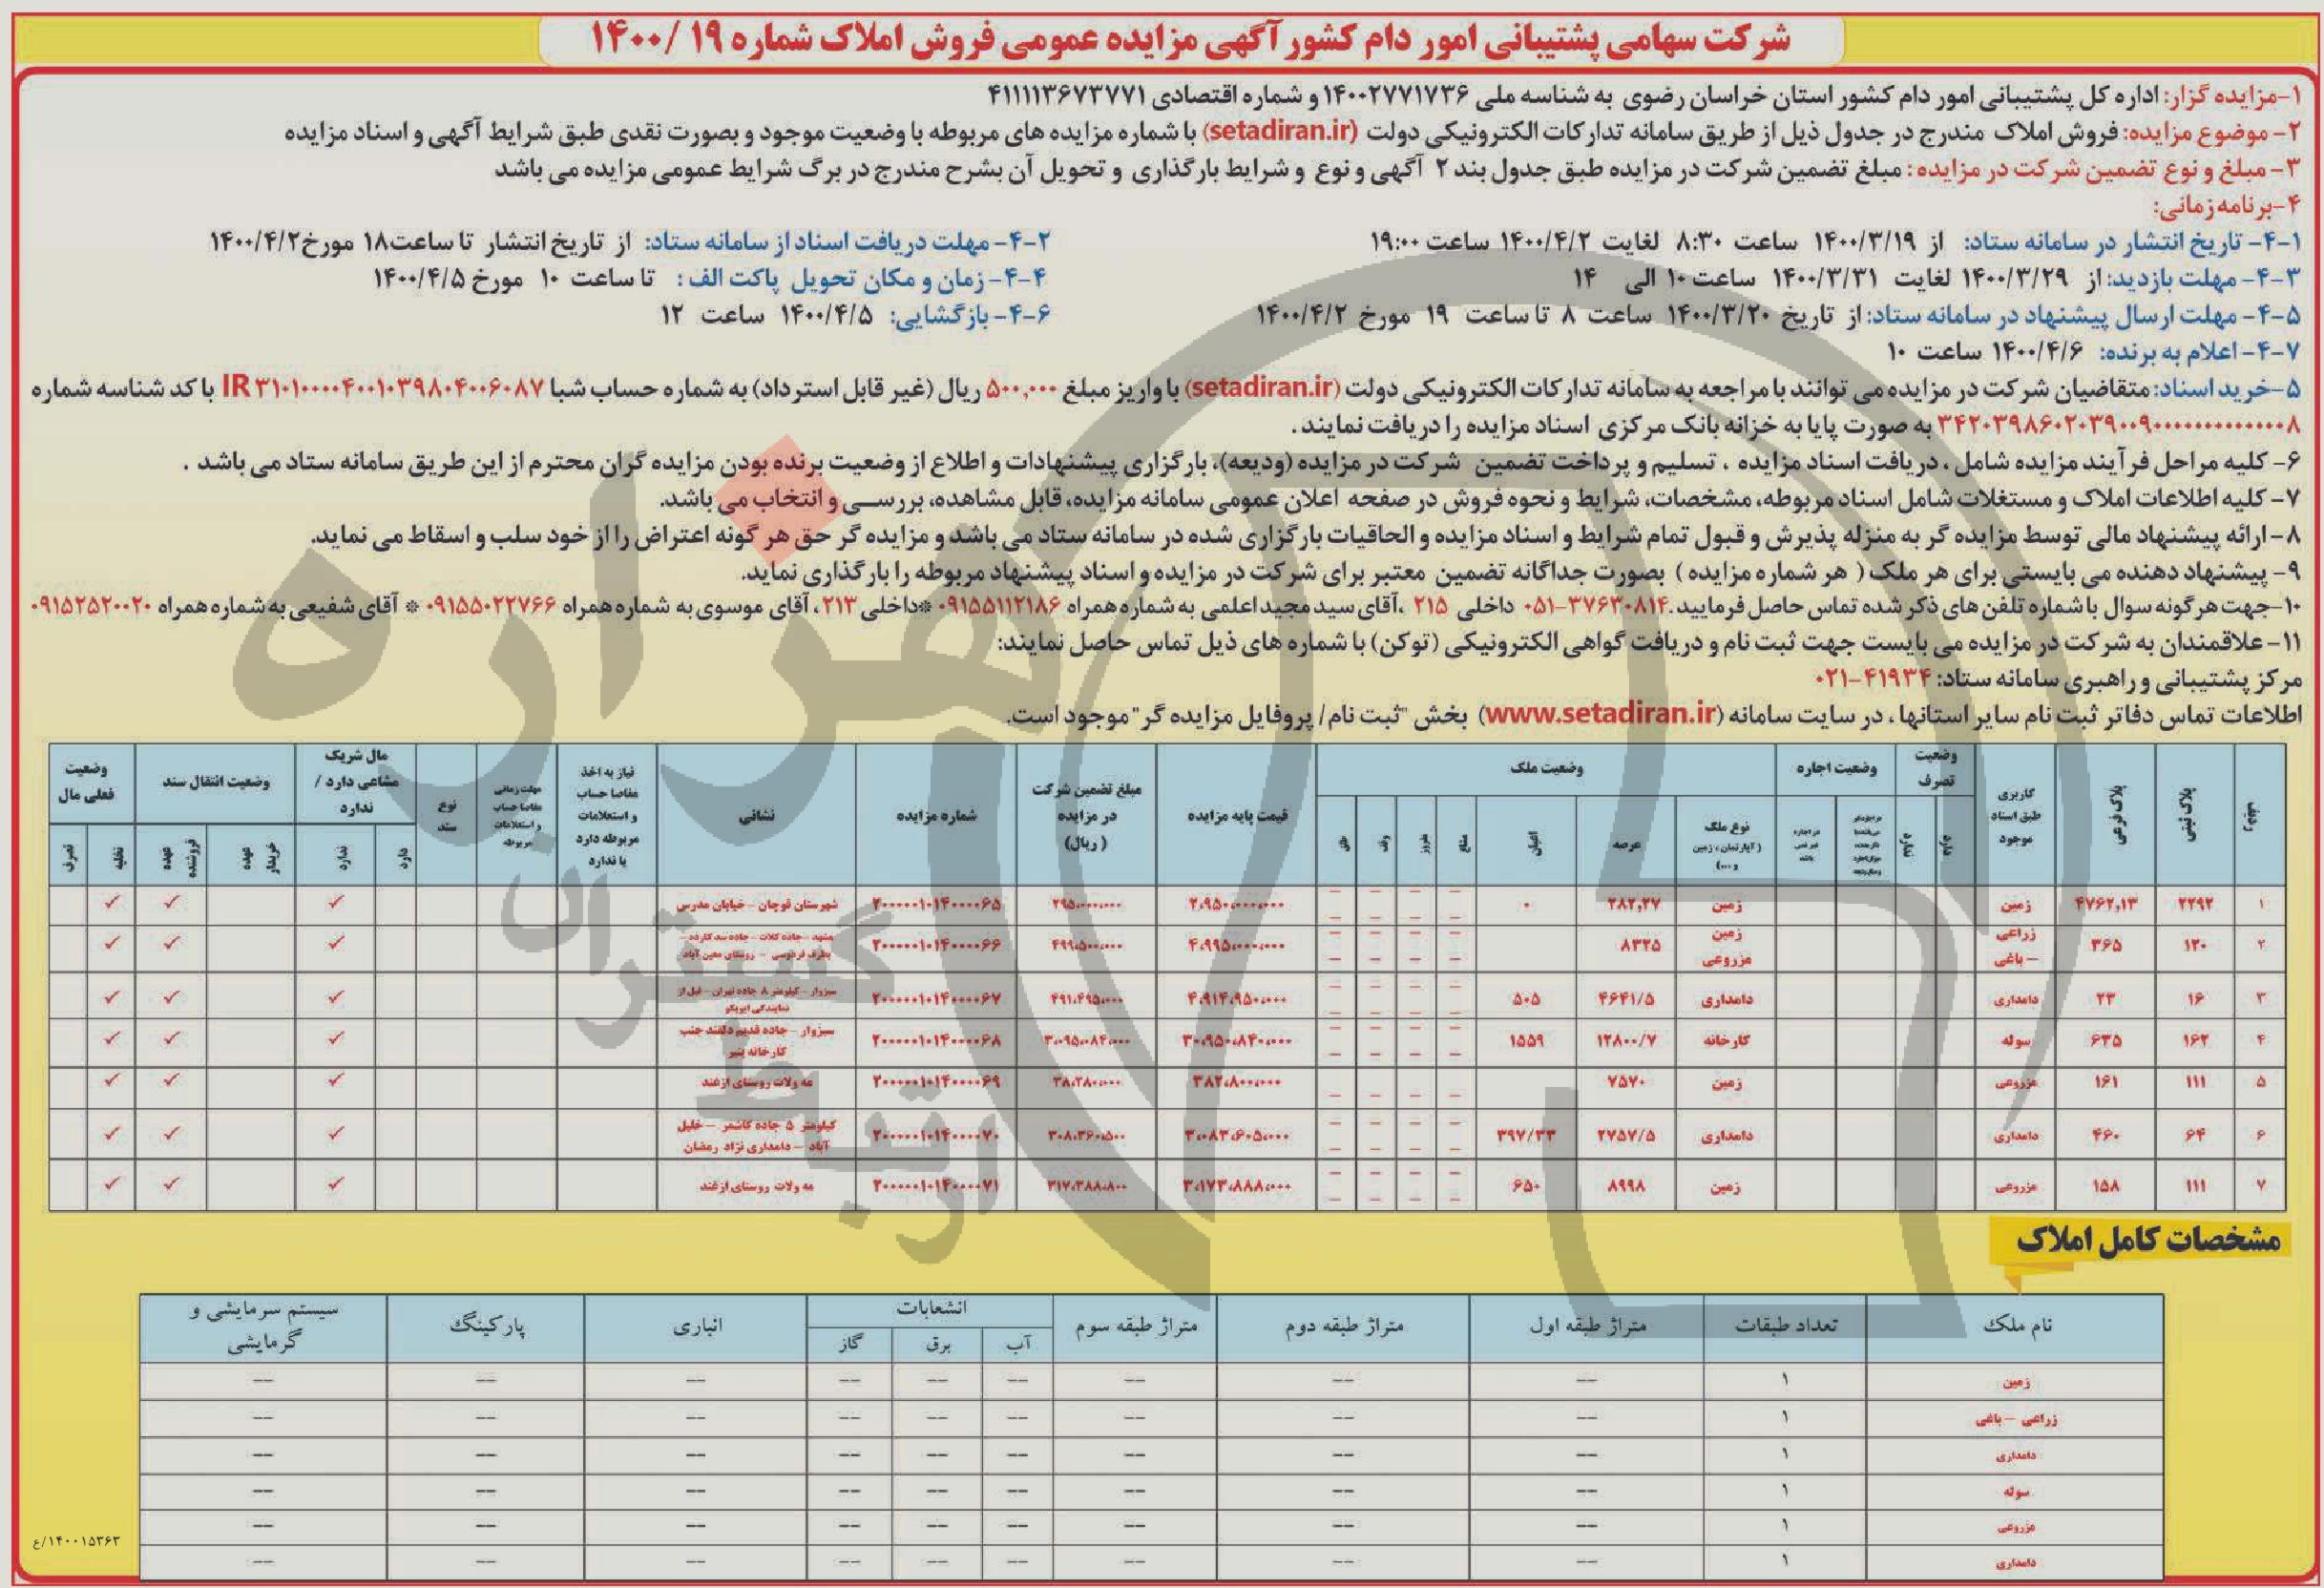 شرکت سهامی پشتیبانی امور دام کشور آگهی مزایده عمومی فروش املاک شماره ۱۹ /۱۴۰۰
۱-مزایده گزار: اداره کل پشتیبانی امور دام کشور استان خراسان رضوی به شناسه ملی ۱۴۰۰۲۷۷۱۷۳۶ و شماره اقتصادی ۴۱۱۱۱۳۶۷۳۷۷۱
۲- موضوع مزایده: فروش املاک مندرج در جدول ذیل از طریق سامانه تدارکات الکترونیکی دولت (setadiran.ir) با شماره مزایده های مربوطه با وضعیت موجود و بصورت نقدی طبق شرایط آگهی و اسناد مزایده
۳- مبلغ و نوع تضمین شرکت در مزایده: مبلغ تضمین شرکت در مزایده طبق جدول بند ۲ آگهی و نوع و شرایط بارگذاری و تحویل آن بشرح مندرج در برگ شرایط عمومی مزایده می باشد
۴-برنامه زمانی:
۴-۱- تاریخ انتشار در سامانه ستاد: از ۱۴۰۰/۳/۱۹ ساعت ۸:۳۰ لغایت ۱۴۰۰/۴/۲ ساعت ۱۹:۰۰
۴-۲- مهلت دریافت اسناد از سامانه ستاد: از تاریخ انتشار تا ساعت۱۸ مورخ۱۴۰۰/۴/۲
۴-۳- مهلت بازدید: از ۱۴۰۰/۳/۲۹ لغایت ۱۴۰۰/۳/۳۱ ساعت ۱۰ الی ۱۴
۴-۴- زمان و مکان تحویل پاکت الف: تا ساعت ۱۰ مورخ ۱۴۰۰/۴/۵
۴-۵- مهلت ارسال پیشنهاد در سامانه ستاد: از تاریخ ۱۴۰۰/۳/۲۰ ساعت ۸ تا ساعت ۱۹ مورخ ۱۴۰۰/۴/۲
۴-۶- بازگشایی: ۱۴۰۰/۴/۵ ساعت ۱۲
۴-۷- اعلام به برنده: ۱۴۰۰/۴/۶ ساعت ۱۰
۵-خرید اسناد: متقاضیان شرکت در مزایده می توانند با مراجعه به سامانه تدارکات الکترونیکی دولت (setadiran.ir) با واریز مبلغ ۵۰۰,۰۰۰ ریال (غیر قابل استرداد) به شماره حساب شبا IR۳۱۰۱۰۰۰۰۴۰۰۱۰۳۹۸۰۴۰۰۶۰۸۷ با کد شناسه شماره
به صورت پایا به خزانه بانک مرکزی اسناد مزایده را دریافت نمایند.
۶- کلیه مراحل فرآیند مزایده شامل، دریافت اسناد مزایده، تسلیم و پرداخت تضمین شرکت در مزایده (ودیعه)، بارگزاری پیشنهادات و اطلاع از وضعیت برنده بودن مزایده گران محترم از این طریق سامانه ستاد می باشد.
۷- کلیه اطلاعات املاک و مستغلات شامل اسناد مربوطه، مشخصات، شرایط و نحوه فروش در صفحه اعلان عمومی سامانه مزایده، قابل مشاهده، بررسی و انتخاب می باشد.
۸- ارائه پیشنهاد مالی توسط مزایده گر به منزله پذیرش و قبول تمام شرایط و اسناد مزایده و الحاقیات بارگزاری شده در سامانه ستاد می باشد و مزایده گر حق هر گونه اعتراض را از خود سلب و اسقاط می نماید.
۹- پیشنهاد دهنده می بایستی برای هر ملک ( هر شماره مزایده ) بصورت جداگانه تضمین معتبر برای شرکت در مزایده و اسناد پیشنهاد مربوطه را بارگذاری نماید.
۱۰-جهت هر گونه سوال با شماره تلفن های ذکر شده تماس حاصل فرمایید. ۳۷۶۳۰۸۱۴-۰۵۱ داخلی ۲۱۵ ،آقای سید مجید اعلمی به شماره همراه ۰۹۱۵۵۱۱۲۱۸۶ *داخلی ۲۱۳، آقای موسوی به شماره همراه ۰۹۱۵۵۰۲۲۷۶۶ * آقای شفیعی به شماره همراه ۰۹۱۵۲۵۲۰۰۲۰
۱۱- علاقمندان به شرکت در مزایده می بایست جهت ثبت نام و دریافت گواهی الکترونیکی (توکن) با شماره های ذیل تماس حاصل نمایند:
مرکز پشتیبانی و راهبری سامانه ستاد: ۴۱۹۳۴-۰۲۱
اطلاعات تماس دفاتر ثبت نام سایر استانها، در سایت سامانه (www.setadiran.ir) بخش "ثبت نام/ پروفایل مزایده گر" موجود است.
ردیف | پلاک ثبتی | پلاک فرعی | کاربری طبق اسناد موجود | وضعیت تصرف | وضعیت اجاره | وضعیت ملک | قیمت پایه مزایده | مبلغ تضمین شرکت در مزایده (ریال) | شماره مزایده | نشانی | نیاز به اخذ مفاصا حساب و استعلامات مربوطه دارد یا ندارد | مهلت زمانی مفاصا حساب و استعلامات مربوطه | نوع سند | مال شریک مشاعی دارد / ندارد | وضعیت انتقال سند | وضعیت فعلی مال
دارد | ندارد | نوع ملک (آپارتمان، زمین و ...) | عرصه | اعیان | مشاع | مفروز | وقف | ملی | دارد | ندارد | عهده خریدار | عهده فروشنده | تخلیه | تصرف
۱ | ۲۲۹۲ | ۴۷۶۲,۱۳ | زمین | زمین | ۲۸۲,۲۷ | ۰ | – | – | – | – | ۲،۹۵۰،۰۰۰،۰۰۰ | ۲۹۵،۰۰۰،۰۰۰ | ۲۰۰۰۰۰۱۰۱۴۰۰۰۰۶۵ | شهرستان قوچان - خیابان مدرس | ✓ | ✓ | ✓
۲ | ۱۲۰ | ۳۶۵ | زراعی - باغی | زمین مزروعی | ۸۳۲۵ | – | – | – | – | ۴،۹۹۵،۰۰۰،۰۰۰ | ۴۹۹،۵۰۰،۰۰۰ | ۲۰۰۰۰۰۱۰۱۴۰۰۰۰۶۶ | مشهد - جاده کلات - جاده سد کارده - بطرف فردوسی - روستای معین آباد | ✓ | ✓ | ✓
۳ | ۱۶ | ۲۳ | دامداری | دامداری | ۴۶۴۱/۵ | ۵۰۵ | – | – | – | – | ۴،۹۱۴،۹۵۰،۰۰۰ | ۴۹۱،۴۹۵،۰۰۰ | ۲۰۰۰۰۰۱۰۱۴۰۰۰۰۶۷ | سبزوار - کیلومتر ۸ جاده تهران - قبل از نمایندگی | ✓ | ✓ | ✓
۴ | ۱۶۲ | ۶۳۵ | سوله | کارخانه | ۱۲۸۰۰/۷ | ۱۵۵۹ | – | – | – | – | ۳۰،۹۵۰،۸۴۰،۰۰۰ | ۳،۰۹۵،۰۸۴،۰۰۰ | ۲۰۰۰۰۰۱۰۱۴۰۰۰۰۶۸ | سبزوار - جاده قدیم دلقند جنب کارخانه پنیر | ✓ | ✓ | ✓
۵ | ۱۱۱ | ۱۶۱ | مزروعی | زمین | ۷۵۷۰ | – | – | – | – | ۳۸۲،۸۰۰،۰۰۰ | ۳۸،۲۸۰،۰۰۰ | ۲۰۰۰۰۰۱۰۱۴۰۰۰۰۶۹ | مه ولات روستای ازغند | ✓ | ✓ | ✓
۶ | ۶۴ | ۴۶۰ | دامداری | دامداری | ۲۷۵۷/۵ | ۳۹۷/۳۳ | – | – | – | – | ۳،۰۸۳،۶۰۵،۰۰۰ | ۳۰۸،۳۶۰،۵۰۰ | ۲۰۰۰۰۰۱۰۱۴۰۰۰۰۷۰ | کیلومتر ۵ جاده کاشمر - خلیل آباد - دامداری نژاد رمضان | ✓ | ✓ | ✓
۷ | ۱۱۱ | ۱۵۸ | مزروعی | زمین | ۸۹۹۸ | ۶۵۰ | – | – | – | – | ۳،۱۷۳،۸۸۸،۰۰۰ | ۳۱۷،۳۸۸،۸۰۰ | ۲۰۰۰۰۰۱۰۱۴۰۰۰۰۷۱ | مه ولات روستای ازغند | ✓ | ✓ | ✓
مشخصات کامل املاک
نام ملک | تعداد طبقات | متراژ طبقه اول | متراژ طبقه دوم | متراژ طبقه سوم | انشعابات | انباری | پارکینگ | سیستم سرمایشی و گرمایشی
آب | برق | گاز
زمین | ۱ | -- | -- | -- | -- | -- | -- | -- | -- | --
زراعی - باغی | ۱ | -- | -- | -- | -- | -- | -- | -- | -- | --
دامداری | ۱ | -- | -- | -- | -- | -- | -- | -- | -- | --
سوله | ۱ | -- | -- | -- | -- | -- | -- | -- | -- | --
مزروعی | ۱ | -- | -- | -- | -- | -- | -- | -- | -- | --
دامداری | ۱ | -- | -- | -- | -- | -- | -- | -- | -- | --
۱۴۰۰۱۵۳۶۳/ع
هزاره
گستران
ارتباط